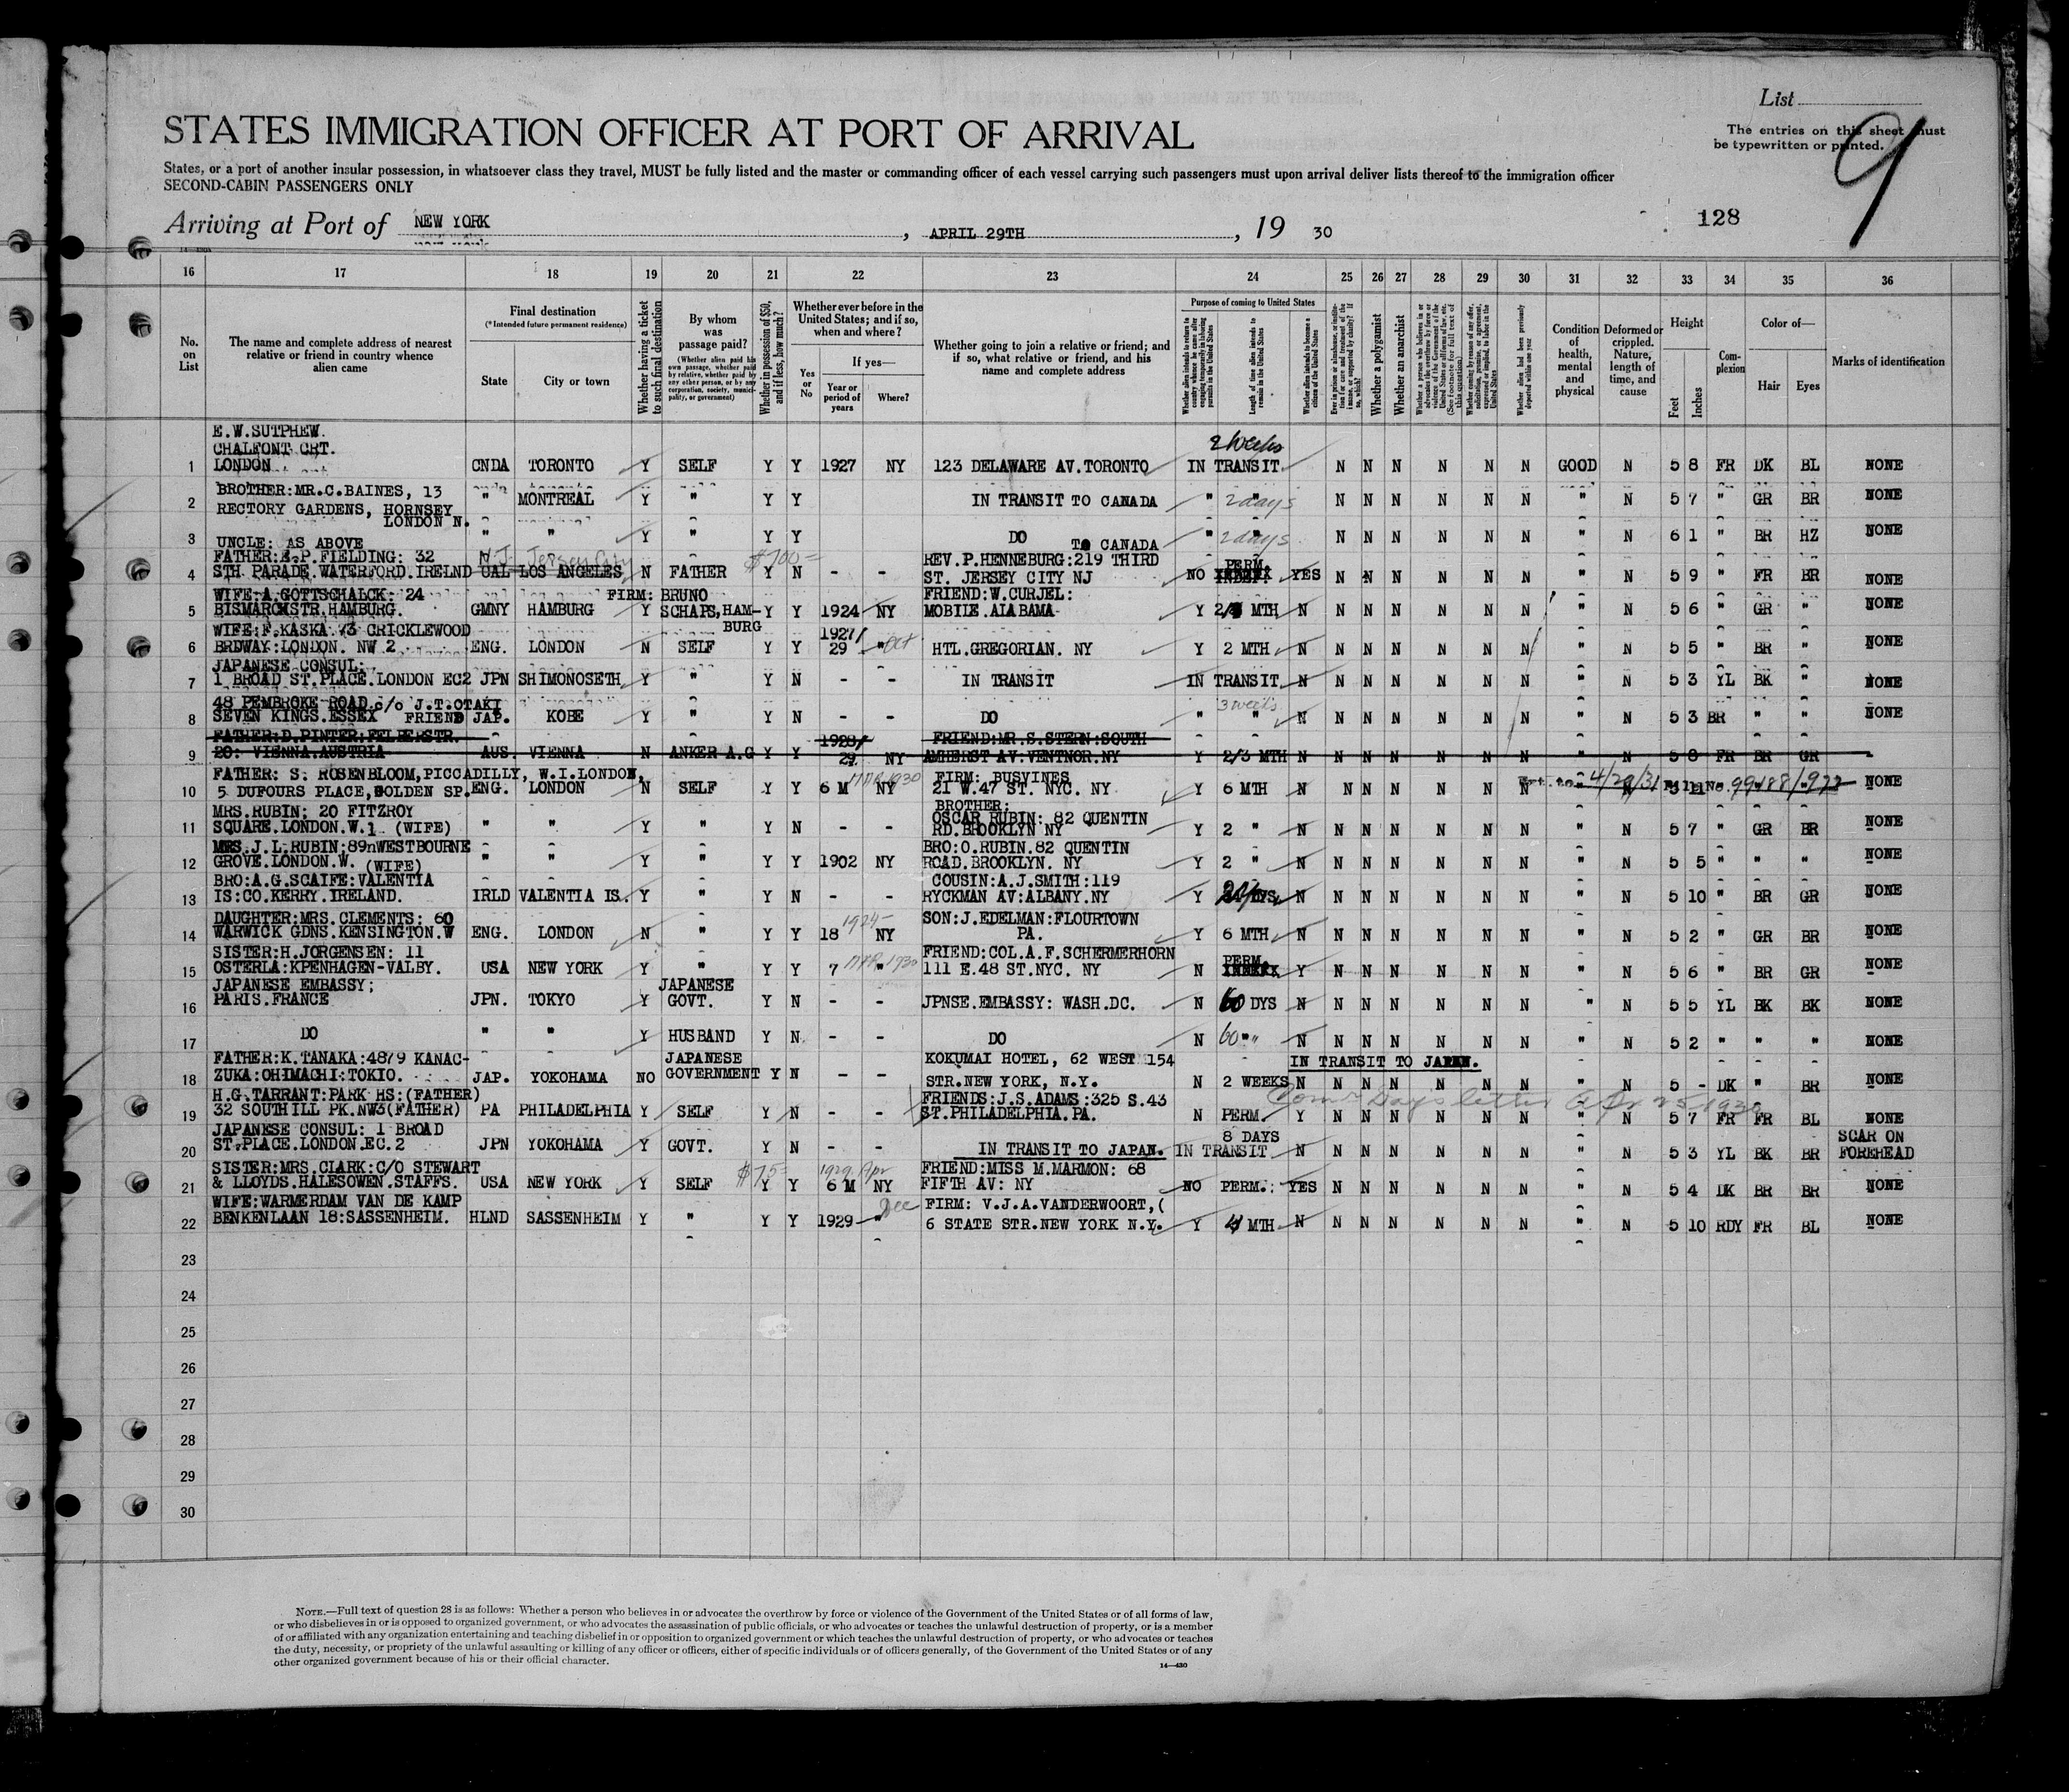 List
The entries on this sheet must
be typewritten or printed.
9
STATES IMMIGRATION OFFICER AT PORT OF ARRIVAL
States, or a port of another insular possession, in whatsoever class they travel, MUST be fully listed and the master or commanding officer of each vessel carrying such passengers must upon arrival deliver lists thereof to the immigration officer
SECOND-CABIN PASSENGERS ONLY
Arriving at Port of NEW YORK , APRIL 29TH , 19 30
128
16 17 18 19 20 21 22 23 24 25 26 27 28 29 30 31 32 33 34 35 36
No. on List
The name and complete address of nearest relative or friend in country whence alien came
Final destination
(*Intended future permanent residence)
State City or town
Whether having a ticket to such final destination
By whom was passage paid?
(Whether alien paid his own passage, whether paid by relative, whether paid by any other person, or by any corporation, society, municipality, or government)
Whether in possession of $50, and if less, how much?
Whether ever before in the United States; and if so, when and where?
Yes or No
If yes—
Year or period of years Where?
Whether going to join a relative or friend; and if so, what relative or friend, and his name and complete address
Purpose of coming to United States
Whether alien intends to return to country whence he came after engaging temporarily in laboring pursuits in the United States
Length of time alien intends to remain in the United States
Whether alien intends to become a citizen of the United States
Whether a polygamist
Whether an anarchist
Whether alien had been previously deported within one year
Condition of health, mental and physical
Deformed or crippled. Nature, length of time, and cause
Height
Feet Inches
Complexion
Color of—
Hair Eyes
Marks of identification
E.W.SUTPHEW.
CHALFONT CRT. 2 Weeks
1 LONDON CNDA TORONTO Y SELF Y Y 1927 NY 123 DELAWARE AV.TORONTO IN TRANSIT N N N N N N GOOD N 5 8 FR DK BL NONE
BROTHER:MR.C.BAINES, 13
2 RECTORY GARDENS, HORNSEY " MONTREAL Y " Y Y IN TRANSIT TO CANADA " " 2 days N N N N N N " N 5 7 " GR BR NONE
LONDON N.
3 UNCLE: AS ABOVE " " Y " Y Y DO TO CANADA " " 2 days N N N N N N " N 6 1 " BR HZ NONE
FATHER:E.P.FIELDING: 32 N.J. Jersey City $700= REV.P.HENNEBURG:219 THIRD PERM.
4 STH PARADE.WATERFORD.IRELND CAL LOS ANGELES N FATHER Y N - - ST. JERSEY CITY NJ NO INDEF. YES N N N N N N " N 5 9 " FR BR NONE
WIFE:A.GOTTSCHALCK: 24 FIRM: BRUNO FRIEND:W.CURJEL:
5 BISMARCKSTR.HAMBURG. GMNY HAMBURG Y SCHAPS,HAM- Y Y 1924 NY MOBILE.ALABAMA Y MTH N N N N N N N " N 5 6 " GR " NONE
BURG
WIFE:F.KASKA 73 CRICKLEWOOD 1927/
6 BRDWAY:LONDON. NW 2 ENG. LONDON N SELF Y Y 29 " Oct HTL.GREGORIAN. NY Y 2 MTH N N N N N N N " N 5 5 " BR " NONE
JAPANESE CONSUL:
7 1 BROAD ST.PLACE.LONDON EC2 JPN SHIMONOSETH Y " Y N - - IN TRANSIT IN TRANSIT N N N N N N N " N 5 3 YL BK " NONE
48 PEMBROKE ROAD c/o J.T.OTAKI 3 weeks
8 SEVEN KINGS.ESSEX FRIEND JAP. KOBE Y " Y N - - DO " " N N N N N N N " N 5 3 BR " " NONE
FATHER:D.PINTER:FELBERSTR. 1928/ FRIEND:MR.S.STERN:SOUTH
9 20: VIENNA.AUSTRIA AUS. VIENNA N ANKER A.G Y Y 29. NY AMHERST AV.VENTNOR.NY Y 2/3 MTH N N N N N N N " N 5 8 FR BR GR -
FATHER: S. ROSENBLOOM,PICCADILLY, W.I.LONDON, MAR 1930 FIRM: BUSVINES 4/29/31 File No. 99488/923
10 5 DUFOURS PLACE,GOLDEN SP. ENG. LONDON N SELF Y Y 6 M NY 21 W.47 ST. NYC. NY Y 6 MTH N N N N N N N " N 5 11 " " " NONE
MRS.RUBIN; 20 FITZROY BROTHER:
OSCAR RUBIN: 82 QUENTIN
11 SQUARE.LONDON.W.1 (WIFE) " " Y " Y N - - RD.BROOKLYN NY Y 2 " N N N N N N N " N 5 7 " GR BR NONE
MRS.J.L.RUBIN:89nWESTBOURNE BRO:O.RUBIN.82 QUENTIN
12 GROVE.LONDON.W. (WIFE) " " Y " Y Y 1902 NY ROAD.BROOKLYN. NY Y 2 " N N N N N N N " N 5 5 " " " NONE
BRO:A.G.SCAIFE:VALENTIA COUSIN:A.J.SMITH:119
13 IS:CO.KERRY.IRELAND. IRLD VALENTIA IS. Y " Y N - - RYCKMAN AV:ALBANY.NY Y DYS N N N N N N N " N 5 10 " BR GR NONE
DAUGHTER:MRS.CLEMENTS: 60 1924- SON:J.EDELMAN:FLOURTOWN
14 WARWICK GDNS.KENSINGTON.W ENG. LONDON N " Y Y 18 NY PA. Y 6 MTH N N N N N N N " N 5 2 " GR BR NONE
SISTER:H.JORGENSEN: 11 MAR 1930 FRIEND:COL.A.F.SCHERMERHORN PERM
15 OSTERLA:KPENHAGEN-VALBY. USA NEW YORK Y " Y Y 7 " 111 E.48 ST.NYC. NY N Y N N N N N N " N 5 6 " BR GR NONE
JAPANESE EMBASSY; JAPANESE
16 PARIS.FRANCE JPN. TOKYO Y GOVT. Y N - - JPNSE.EMBASSY: WASH.DC. N 60 DYS N N N N N N N " N 5 5 YL BK BK NONE
17 DO " " Y HUSBAND Y N - - DO N 60 " N N N N N N N " N 5 2 " " " NONE
FATHER:K.TANAKA:4879 KANAC- JAPANESE KOKUMAI HOTEL, 62 WEST 154 IN TRANSIT TO JAPAN.
18 ZUKA:OHIMACHI:TOKIO. JAP. YOKOHAMA NO GOVERNMENT Y N - - STR.NEW YORK, N.Y. N 2 WEEKS N N N N N N N " N 5 - DK " BR NONE
H.G.TARRANT:PARK HS:(FATHER) FRIENDS:J.S.ADAMS:325 S.43 Days letter Apr 25, 1930
19 32 SOUTHILL PK.NW3(FATHER) PA PHILADELPHIA Y SELF Y N - - ST.PHILADELPHIA.PA. N PERM. Y N N N N N N " N 5 7 FR FR BL NONE
JAPANESE CONSUL: 1 BROAD 8 DAYS SCAR ON
20 ST.PLACE.LONDON.EC.2 JPN YOKOHAMA Y GOVT. Y N - - IN TRANSIT TO JAPAN. IN TRANSIT N N N N N N N " N 5 3 YL BK BR FOREHEAD
SISTER:MRS.CLARK:C/O STEWART $75= 1929 Apr FRIEND:MISS M.MARMON: 68
21 & LLOYDS.HALESOWEN.STAFFS. USA NEW YORK Y SELF Y Y 6 M NY FIFTH AV: NY NO PERM. YES N N N N N N " N 5 4 DK BR BR NONE
WIFE:WARMERDAM VAN DE KAMP Dec FIRM: V.J.A.VANDERWOORT,(
22 BENKENLAAN 18:SASSENHEIM. HLND SASSENHEIM Y " Y Y 1929 " 6 STATE STR.NEW YORK N.Y. Y 4 MTH N N N N N N N " N 5 10 RDY FR BL NONE
23
24
25
26
27
28
29
30
NOTE.—Full text of question 28 is as follows: Whether a person who believes in or advocates the overthrow by force or violence of the Government of the United States or of all forms of law,
or who disbelieves in or is opposed to organized government, or who advocates the assassination of public officials, or who advocates or teaches the unlawful destruction of property, or is a member
of or affiliated with any organization entertaining and teaching disbelief in or opposition to organized government or which teaches the unlawful destruction of property, or who advocates or teaches
the duty, necessity, or propriety of the unlawful assaulting or killing of any officer or officers, either of specific individuals or of officers generally, of the Government of the United States or of any
other organized government because of his or their official character.
14—430